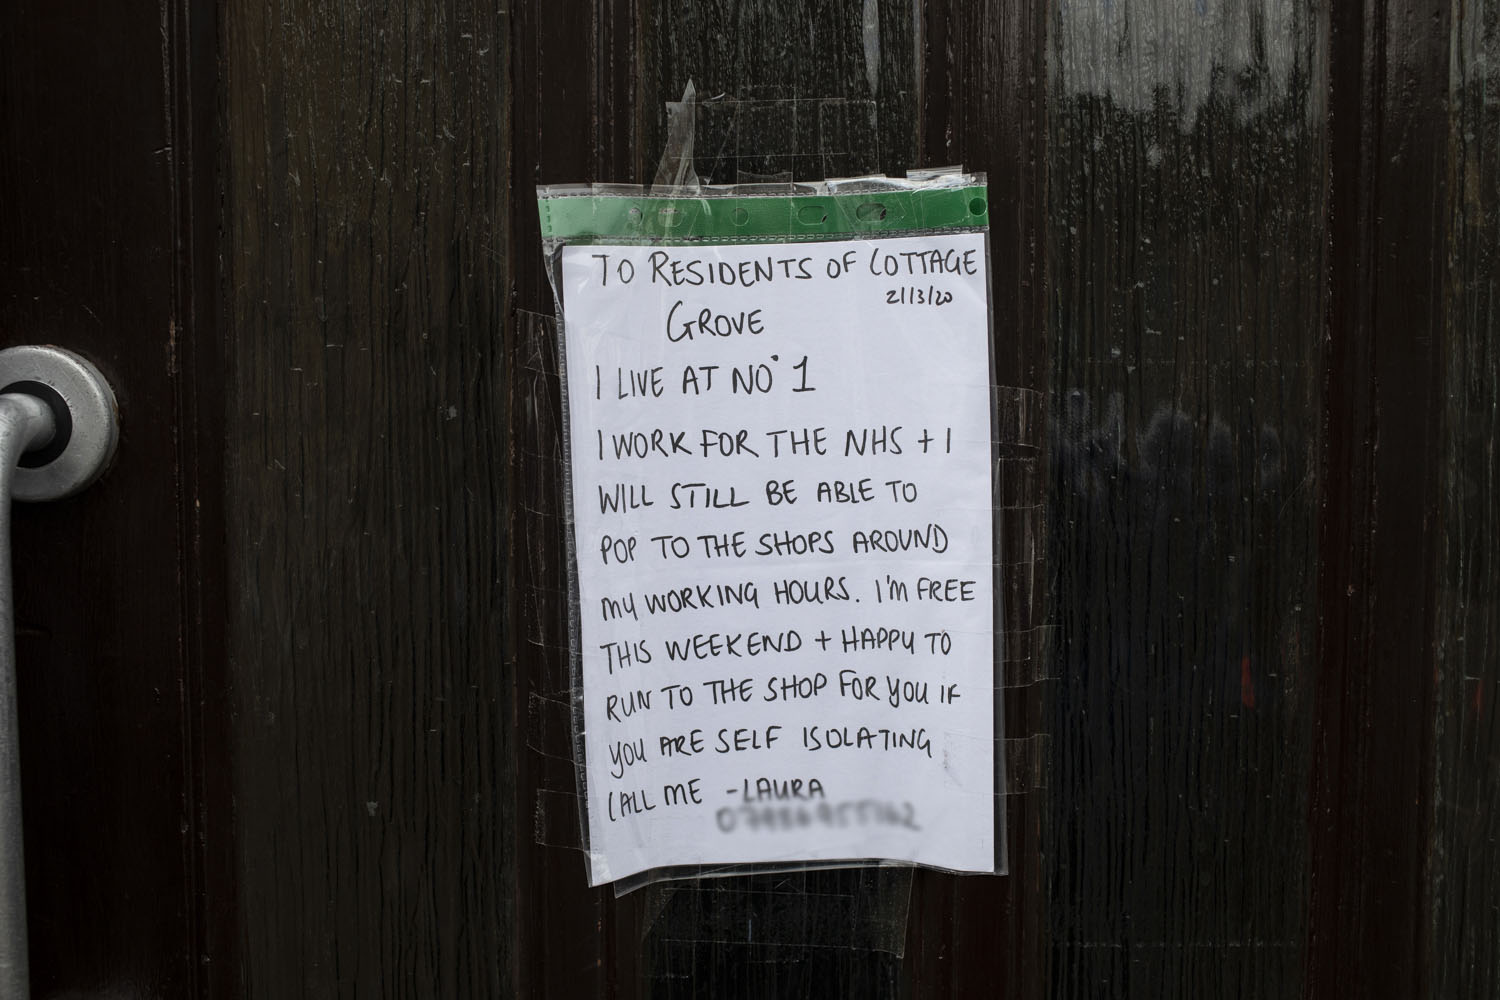 TO RESIDENTS OF COTTAGE
21/3/20
GROVE
I LIVE AT NO 1
I WORK FOR THE NHS + I
WILL STILL BE ABLE TO
POP TO THE SHOPS AROUND
MY WORKING HOURS. I'M FREE
THIS WEEKEND + HAPPY TO
RUN TO THE SHOP FOR YOU IF
YOU ARE SELF ISOLATING
CALL ME - LAURA